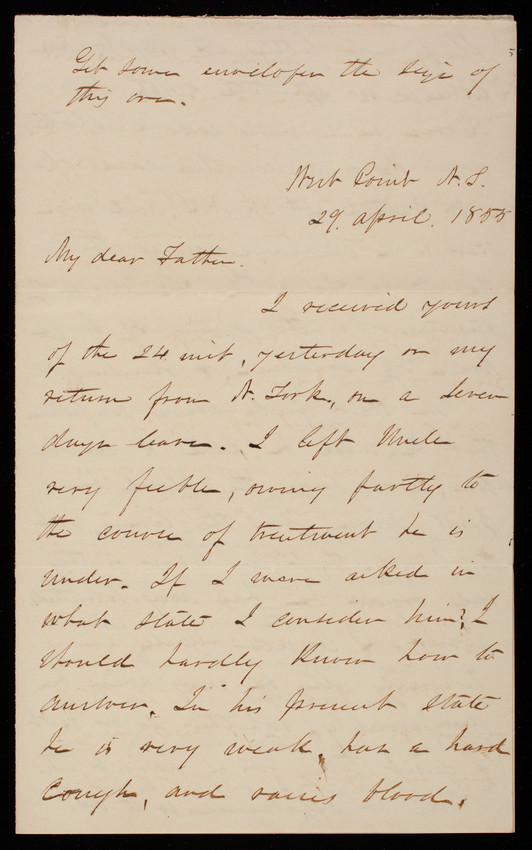 Get some envelopes the size of
this one.
West Point N.Y.
29. april. 1855
My dear Father.
I received yours
of the 24 inst, yesterday on my
return from N. York, on a seven
days leave. I left Uncle
very feeble, owing partly to
the course of treatment he is
under. If I were asked in
what state I consider him? I
should hardly know how to
answer. In his present state
he is very weak, has a hard
cough, and raises blood.